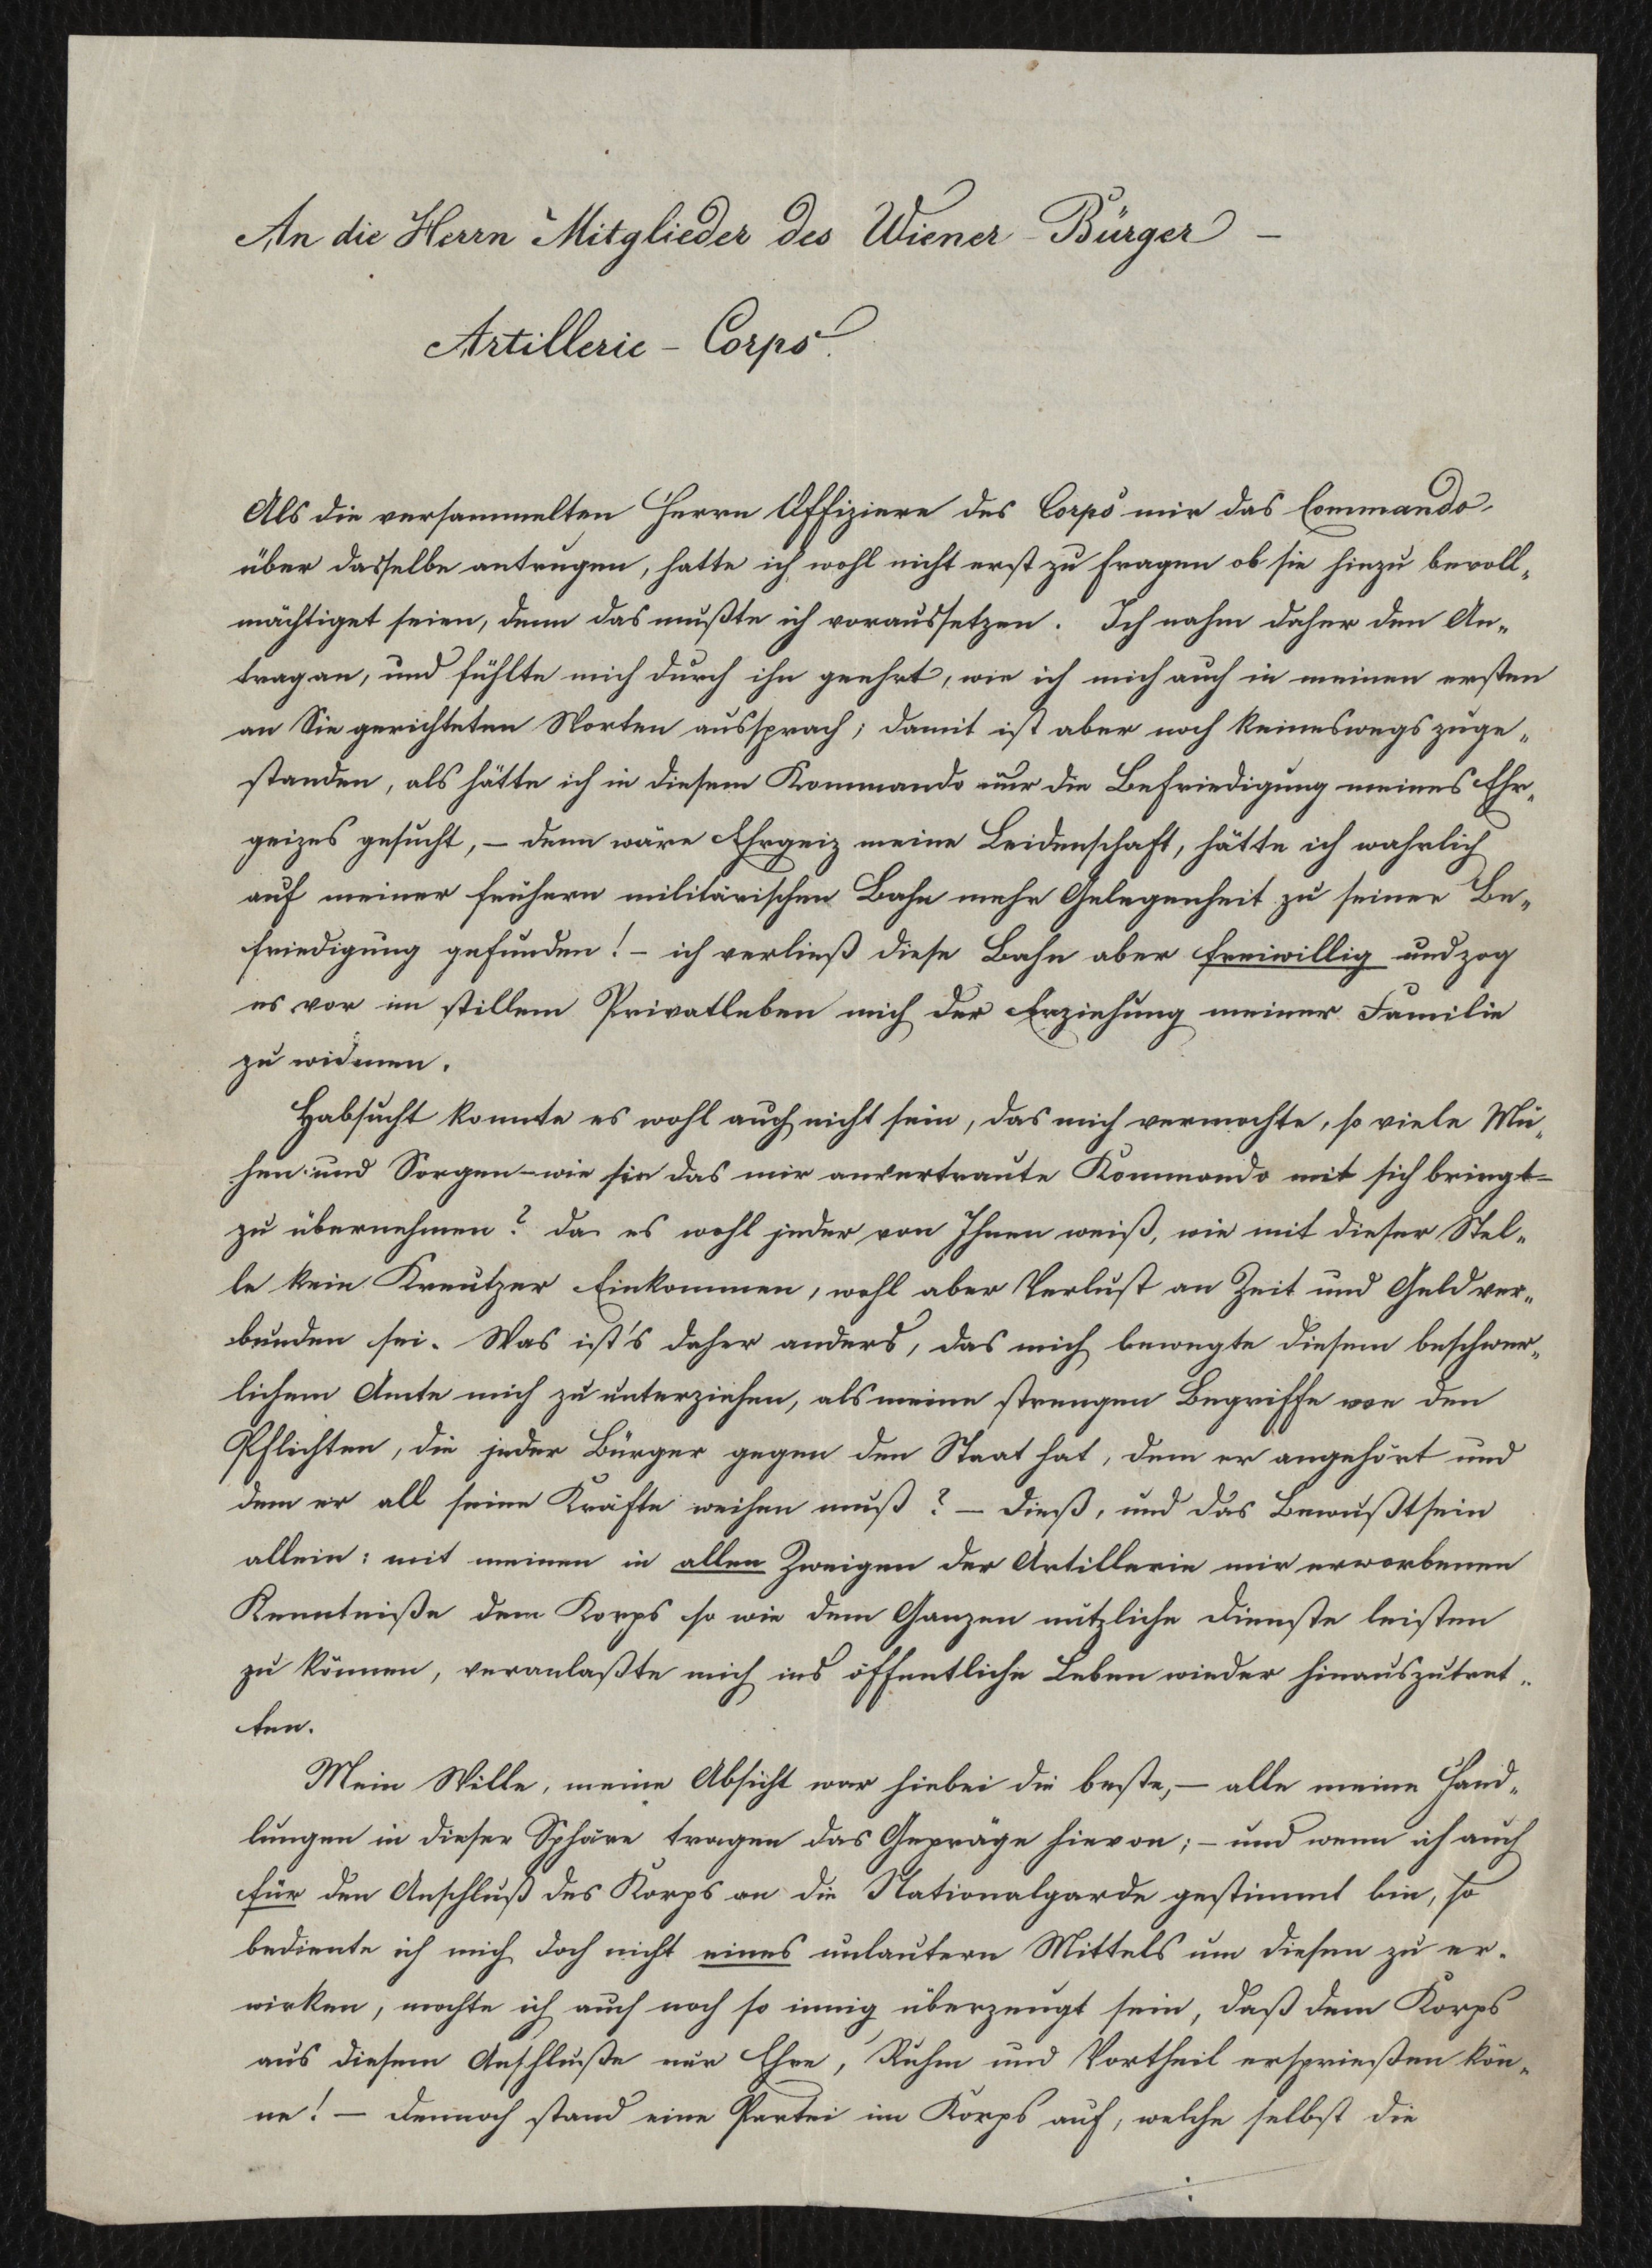 An die Herrn Mitglieder des Wiener-Bürger-
Artillerie-Corps.
Als die versammelten Herrn Offiziere des Corps mir das Commando
über dasselbe antrugen, hatte ich wohl nicht erst zu fragen ob sie hiezu bevoll„
mächtiget seien, denn das mußte ich voraussetzen. Ich nahm daher den An„
trag an, und fühlte mich durch ihn geehrt, wie ich mich auch in meinen ersten
an Sie gerichteten Worten aussprach; damit ist aber noch keineswegs zuge„
standen, als hätte ich in diesem Kommando nur die Befriedigung meines Ehr„
geizes gesucht, – denn wäre Ehrgeiz meine Leidenschaft, hätte ich wahrlich
auf meiner frühern militärischen Bahn mehr Gelegenheit zu seiner Be„
friedigung gefunden! – ich verließ diese Bahn aber freiwillig und zog
es vor im stillem Privatleben mich der Erziehung meiner Familie
zu widmen.
Habsucht konnte es wohl auch nicht sein, das mich vermochte, so viele Mü„
hen und Sorgen – wie sie das mir anvertraute Kommando mit sich bringt –
zu übernehmen? da es wohl jeder von Ihnen weiß, wie mit dieser Stel„
le kein Kreutzer Einkommen, wohl aber Verlust an Zeit und Geld ver„
bunden sei. Was ist's daher anders, das mich bewegte diesem beschwer„
lichem Amte mich zu unterziehen, als meine strengen Begriffe von den
Pflichten, die jeder Bürger gegen den Staat hat, dem er angehört und
dem er all seine Kräfte weihen muß? – Dieß, und das Bewußtsein
allein: mit meinen in allen Zweigen der Artillerie mir erworbenen
Kenntniße dem Korps so wie dem Ganzen nützliche Dienste leisten
zu können, veranlaßte mich ins öffentliche Leben wieder hinauszutret„
ten.
Mein Wille, meine Absicht war hiebei die beste, – alle meine Hand„
lungen in dieser Sphäre tragen das Gepräge hievon; – und wenn ich auch
für den Anschluß des Korps an die Nationalgarde gestimmt bin, so
bediente ich mich doch nicht eines unlautern Mittels um diesen zu er„
wirken, mochte ich auch noch so innig überzeugt sein, daß dem Korps
aus diesem Anschluße nur Ehre, Ruhm und Vortheil ersprießen kön„
ne! – Dennoch stand eine Partei im Korps auf, welche selbst die